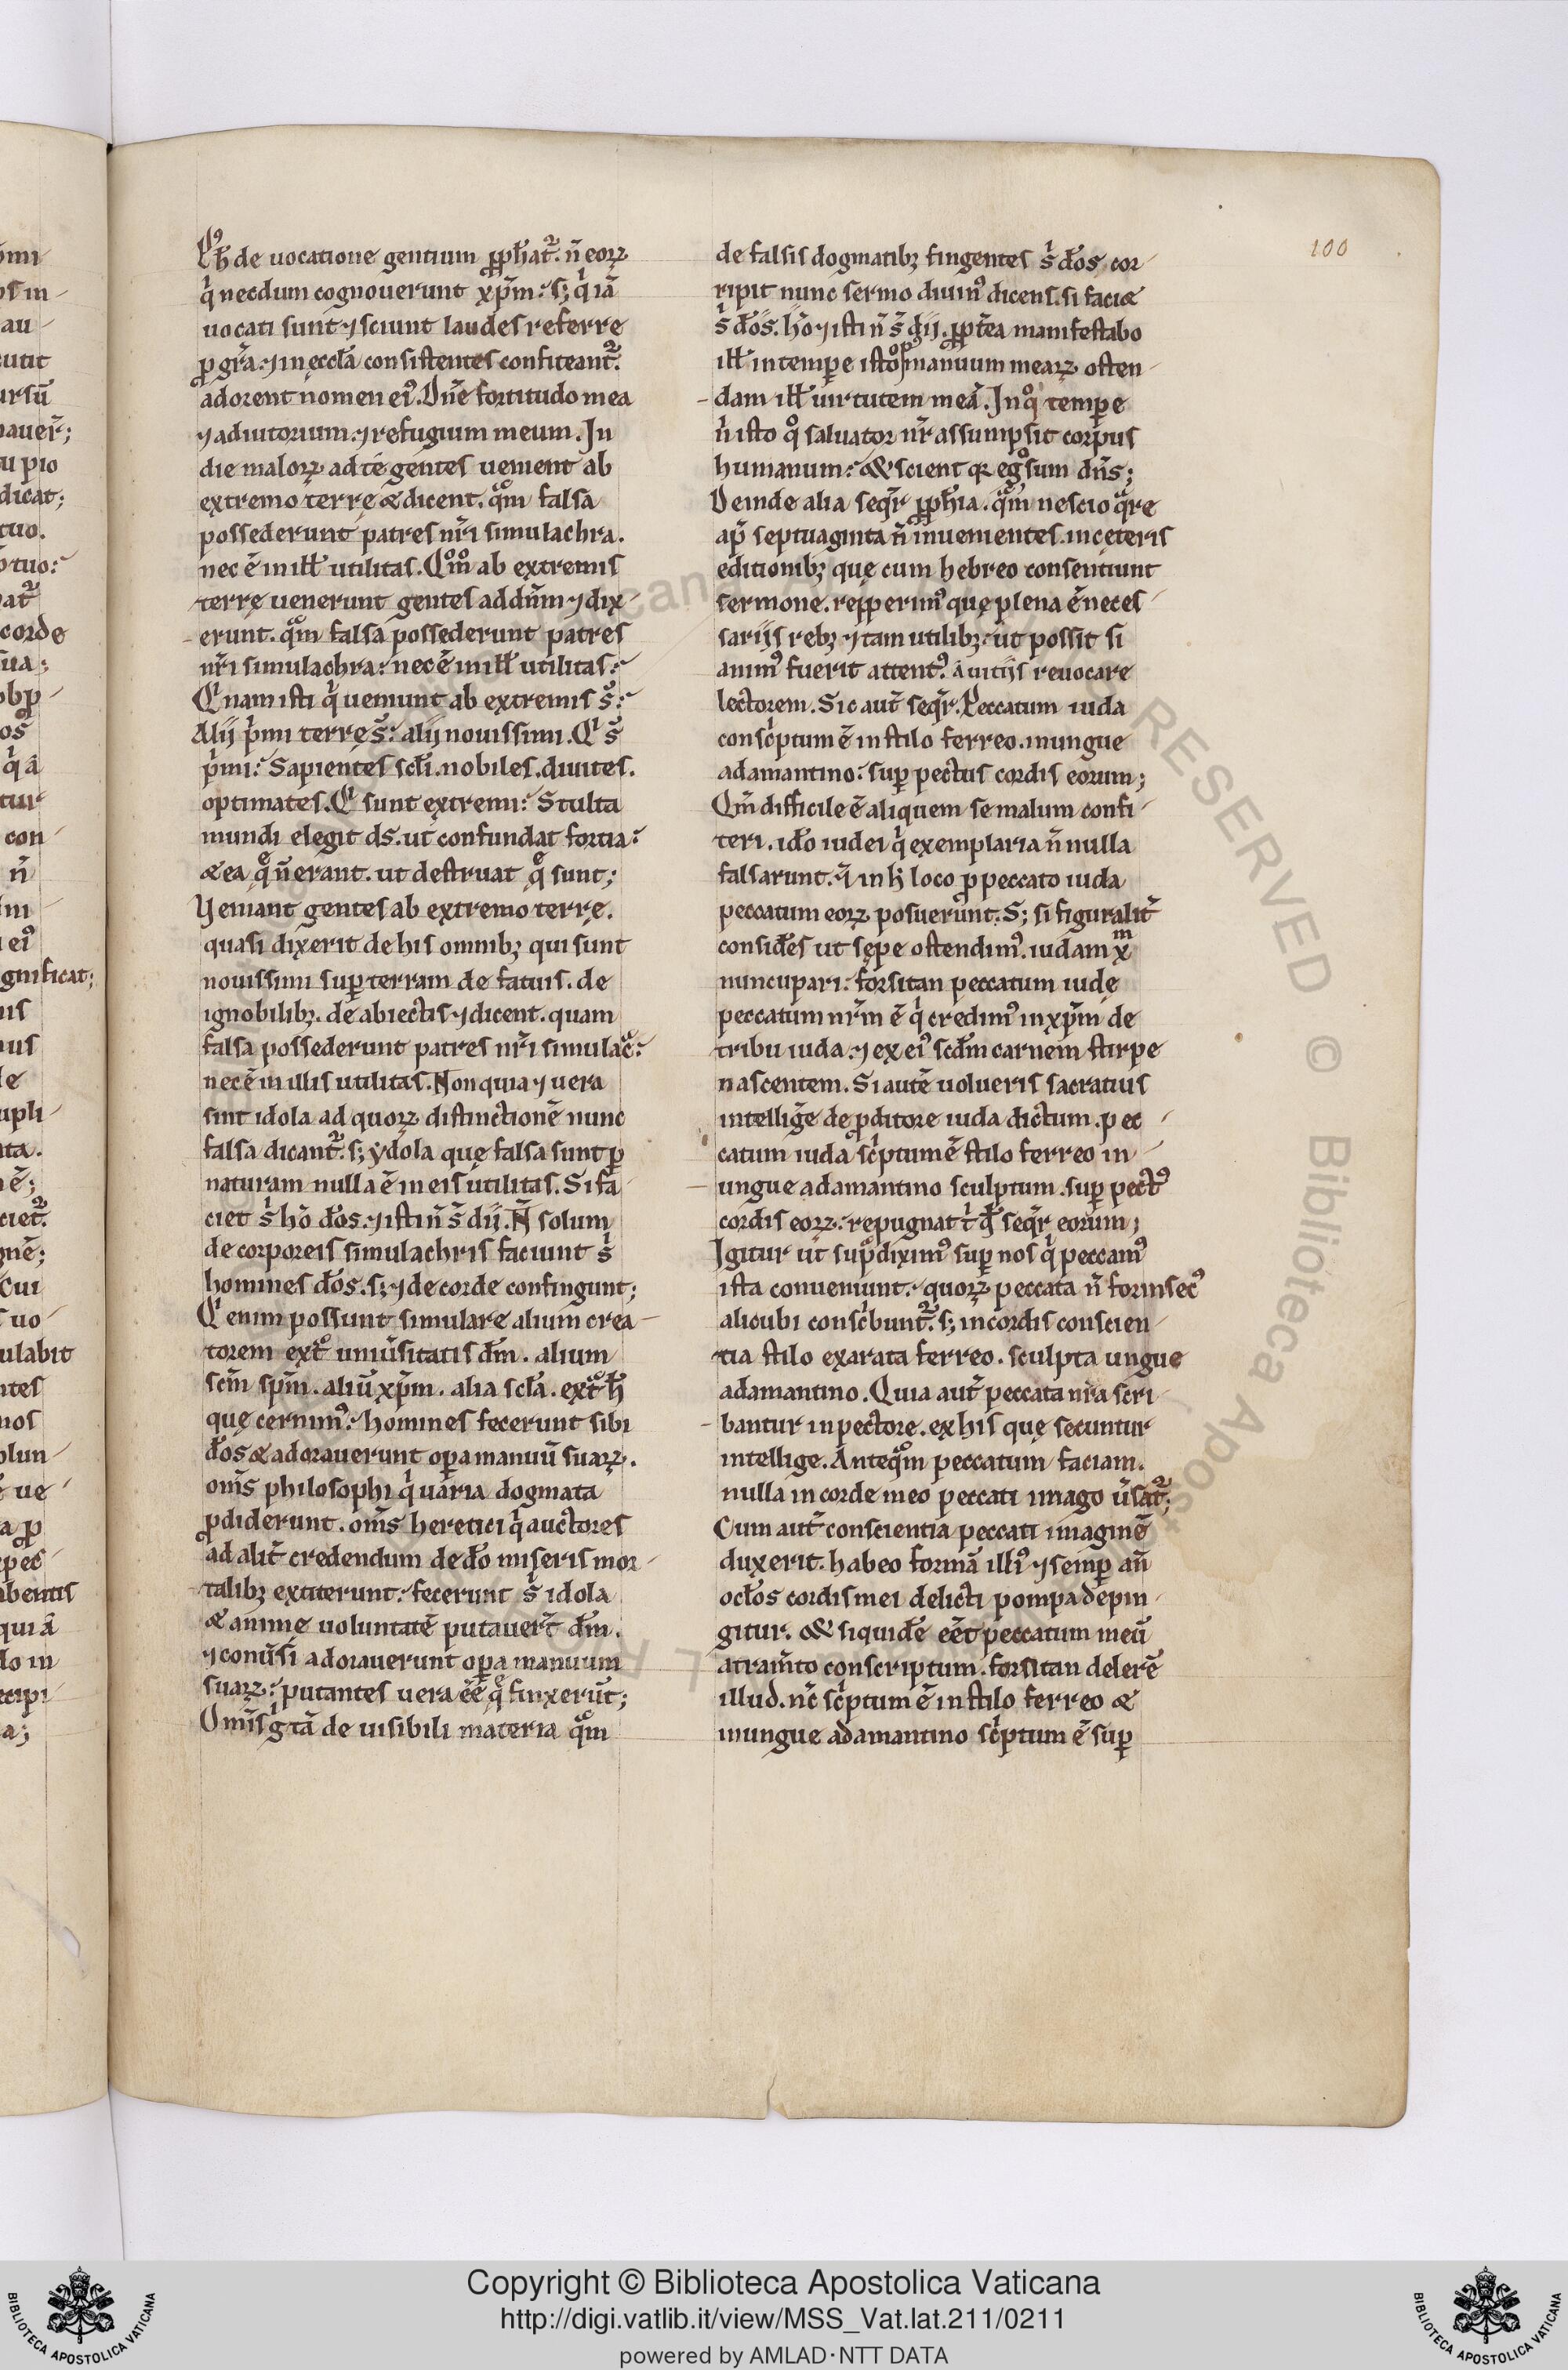 100
Ꝙ hͦ de uocatione gentium ꝓph̃at᷑. ñ eoꝝ
qͥ necdum cognouerunt xp̃m: sꝫ qͥ iã
uocati sunt ⁊ sciunt laudes referre
ꝓ gr̃a. ⁊ in ęccl̃a consistentes confiteant᷑.
adorent nomen eiꝰ. Dñe fortitudo mea
⁊ adiutorium: ⁊ refugium meum. In
die maloꝝ ad te gentes uenient ab
extremo terrę & dicent. qͦm falsa
possederunt patres nr̃i simulachra.
nec ẽ in ill̃ utilitas. Qͦm ab extremis
terrę uenerunt gentes ad dñm ⁊ dix-
erunt. qͦm falsa possederunt patres
nr̃i simulachra: nec ẽ in ill̃ utilitas:
Qͥ nam isti qͥ ueniunt ab extremis s̃:
Alij pͥmi terrę s̃: alij nouissimi. Qͥ s̃
pͥmi: Sapientes scl̃i. nobiles. diuites.
optimates. Qͥ sunt extremi: Stulta
mundi elegit ds̃. ut confundat fortia:
& ea q̃ ñ erant. ut destruat q̃ sunt;
Veniant gentes ab extremo terrę.
quasi dixerit de his omnibꝫ qui sunt
nouissimi suꝑ terram de fatuis. de
ignobilibꝫ. de abiectis ⁊ dicent. quam
falsa possederunt patres nr̃i simulac̃:
nec ẽ in illis utilitas. Non quia ⁊ uera
sint idola ad quoꝝ distinctionẽ nunc
falsa dicant᷑. sꝫ ydola que falsa sunt ꝑ
naturam nulla ẽ in eis utilitas. Si fa-
ciet sͥ hõ dõs. ⁊ isti ñ s̃ dij. Ñ solum
de corporeis simulachris faciunt sͥ
homines dõs. sꝫ ⁊ de corde confingunt;
Qͥ enim possunt simulare alium crea-
torem extͦ uniũsitatis dm̃. alium
scm̃ spm̃. aliũ xp̃m. alia scl̃a. extͦ h̃
quę cernimꝰ: homines fecerunt sibi
dõs & adorauerunt oꝑa manuũ suaꝝ.
oms̃ philosophi qͥ uaria dogmata
ꝓdiderunt. oms̃ heretici qͥ auctores
ad alit̃ credendum de dõ miseris mor-
talibꝫ extiterunt: fecerunt sͥ idola
& animę uoluntatẽ putauer̃t dm̃.
⁊ conũsi adorauerunt oꝑa manuum
suaꝝ: putantes uera ẽẽ q̃ finxerũt;
Omis̃ gͥ tã de uisibili materia qͦm
de falsis dogmatibꝫ fingentes sͥ dõs cor-
ripit nunc sermo diuinꝰ dicens. si faciæ
sͥ dõs. hõ ⁊ isti ñ s̃ dij. ꝓpt̃ea manifestabo
ill̃ in tempe isto manuum mearꝝ osten-
dam ill̃ uirtutem meã. In qͦ tempe
ñ isto qͦ saluator nr̃ assumpsit corpus
humanum: & scient qꝛ egͦ sum dñs;
Deinde alia seqr̃ ꝓph̃ia. qͣm nescio qͣre
ap̃ septuaginta ñ inuenientes. in cęteris
editionibꝫ que cum hebreo consentiunt
sermone. rep̱perimꝰ quę plena ẽ neces-
sarijs rebꝫ ⁊ tam utilibꝫ: ut possit si
animꝰ fuerit attentꝰ a uitijs reuocare
lectorem. Sic aut̃ seqr̃. Peccatum iuda
conscͥptum ẽ in stilo ferreo. in ungue
adamantino: suꝑ pectus cordis eorum;
Qm̃ difficile ẽ aliquem se malum confi-
teri. idõ iudei qͥ exemplaria ñ nulla
falsarunt. ⁊̃ in h̃ loco ꝓ peccato iuda
peccatum eoꝝ posuerunt. Sꝫ si figuralit̃
considẽs ut sępe ostendimꝰ. iudam xͫ
nuncupari: forsitan peccatum iudę
peccatum nr̃m ẽ qͥ credimꝰ in xp̃m de
tribu iuda. ⁊ ex eiꝰ scd̃m carnem stirpe
nascentem. Si autẽ uolueris sacratius
intelligẽ de ꝓditore iuda dictum. pec-
catum iuda scͥptum ẽ stilo ferreo in
ungue adamantino sculptum. suꝑ pectꝰ
cordis eoꝝ: repugnat tͥ qd̃ seqr̃ eorum;
Igitur ut supͣ diximꝰ suꝑ nos qͥ peccamꝰ
ista conueniunt: quoꝝ peccata ñ forinsecꝰ
alicubi conscͥbunt᷑. sꝫ in cordis conscien-
tia stilo exarata ferreo. sculpta ungue
adamantino. Quia aut̃ peccata nr̃a scri-
bantur in pectore. ex his quę secuntur
intellige. Anteqͣm peccatum faciam.
nulla in corde meo peccati imago ũsat᷑;
Cum aut̃ conscientia peccati imaginẽ
duxerit. habeo formã illiꝰ ⁊ semꝑ añ
ocl̃os cordis mei delicti pompa depin-
gitur. & siquidẽ eẽt peccatum meũ
atram̃to conscriptum. forsitan delerẽ
illud. nc̃ scͥptum ẽ in stilo ferreo &
in ungue adamantino scͥptum ẽ suꝑ
Copyright © Biblioteca Apostolica Vaticana
http://digi.vatlib.it/view/MSS_Vat.lat.211/0211
powered by AMLAD·NTT DATA
BIBLIOTECA APOSTOLICA VATICANA
BIBLIOTECA APOSTOLICA VATICANA